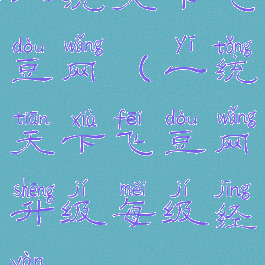 一统天下飞
dòu wǎng yī tǒng
豆网（一统
tiān xià fēi dòu wǎng
天下飞豆网
shēng jí měi jí jīng
升级每级经
yàn